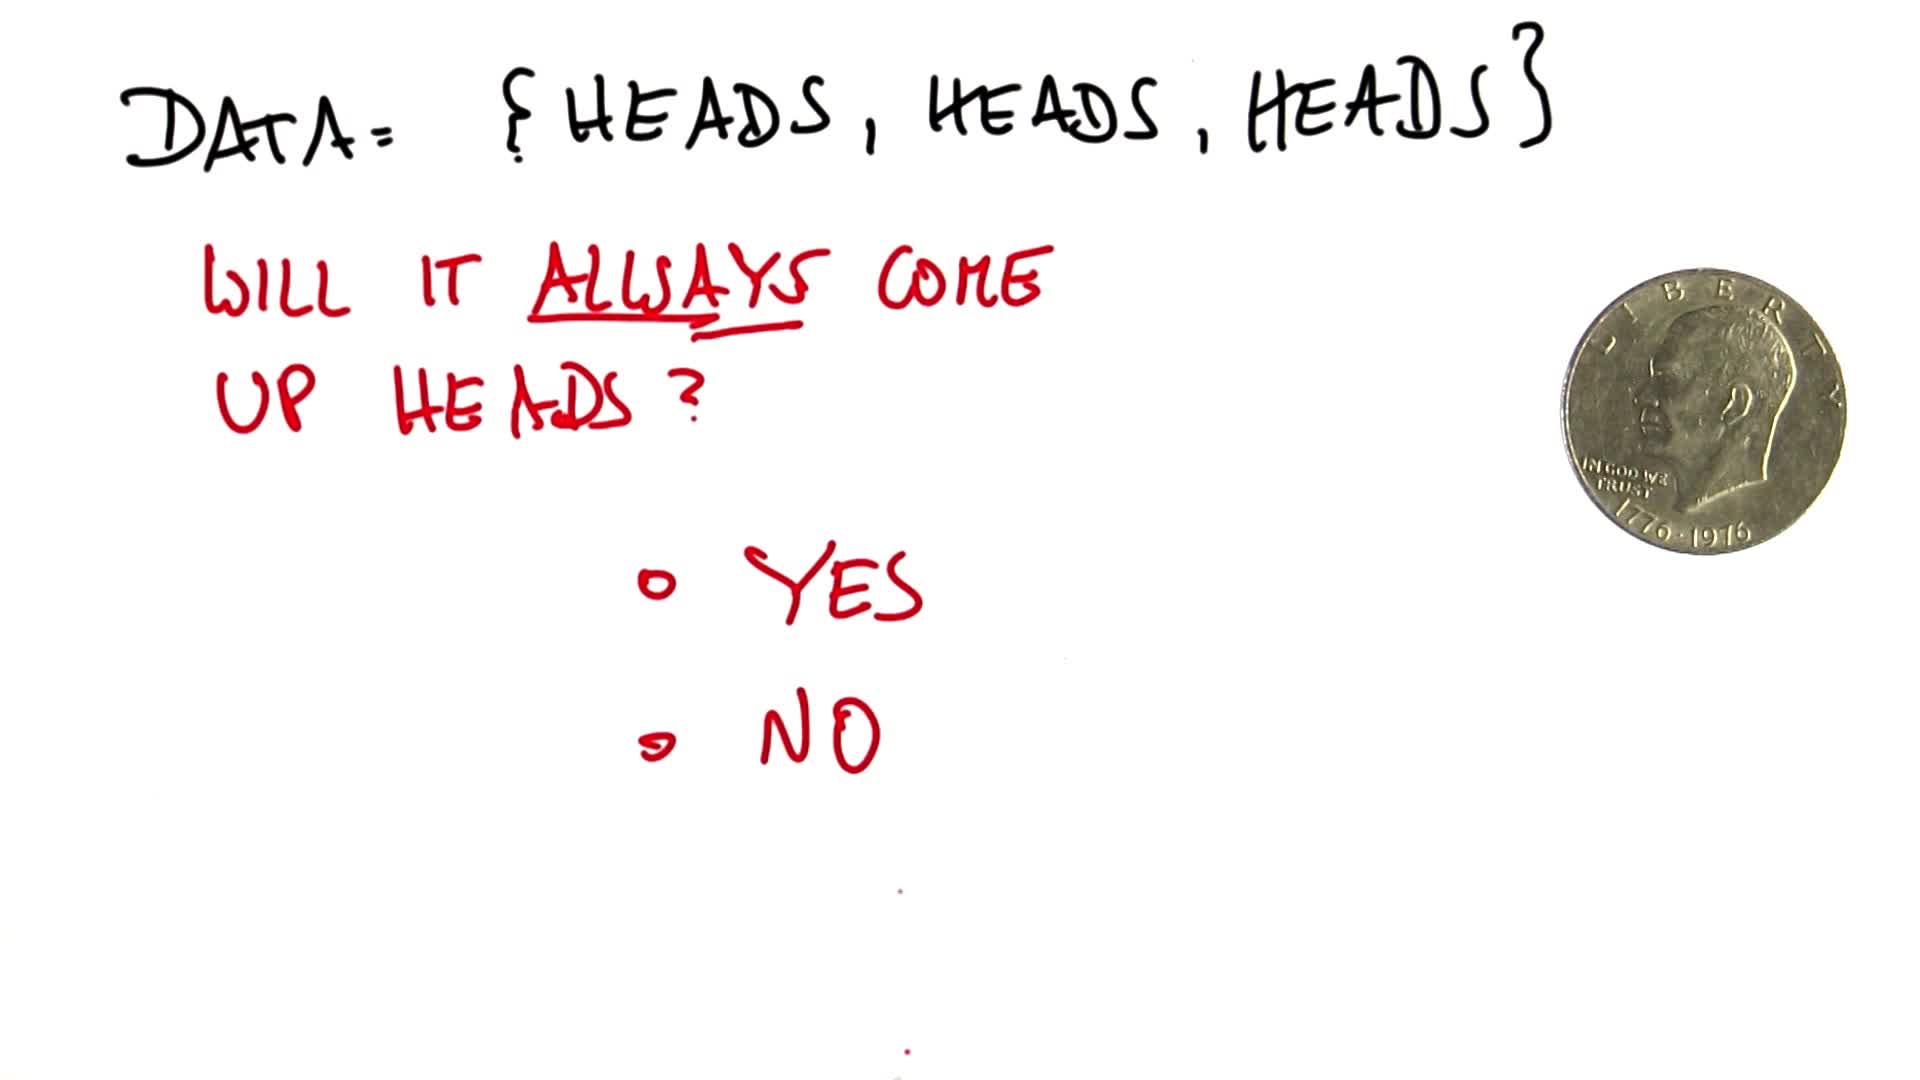 DATA = {HEADS, HEADS, HEADS}
WILL IT ALLWAYS COME
UP HEADS?
YES
NO
LIBERTY
IN GOD WE
TRUST
1776·1976